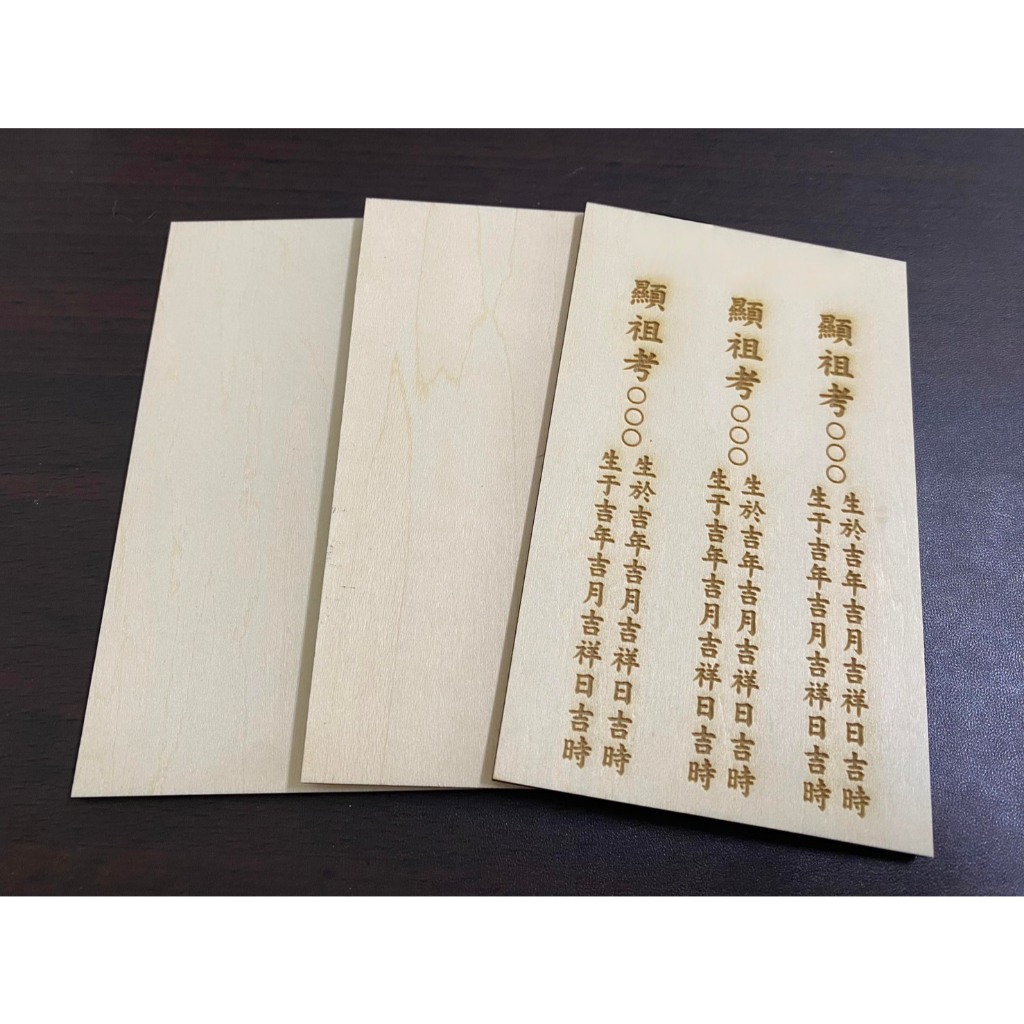 顯祖考○○○
生於吉年吉月吉祥日吉時
生于吉年吉月吉祥日吉時
顯祖考○○○
生於吉年吉月吉祥日吉時
生于吉年吉月吉祥日吉時
顯祖考○○○
生於吉年吉月吉祥日吉時
生于吉年吉月吉祥日吉時